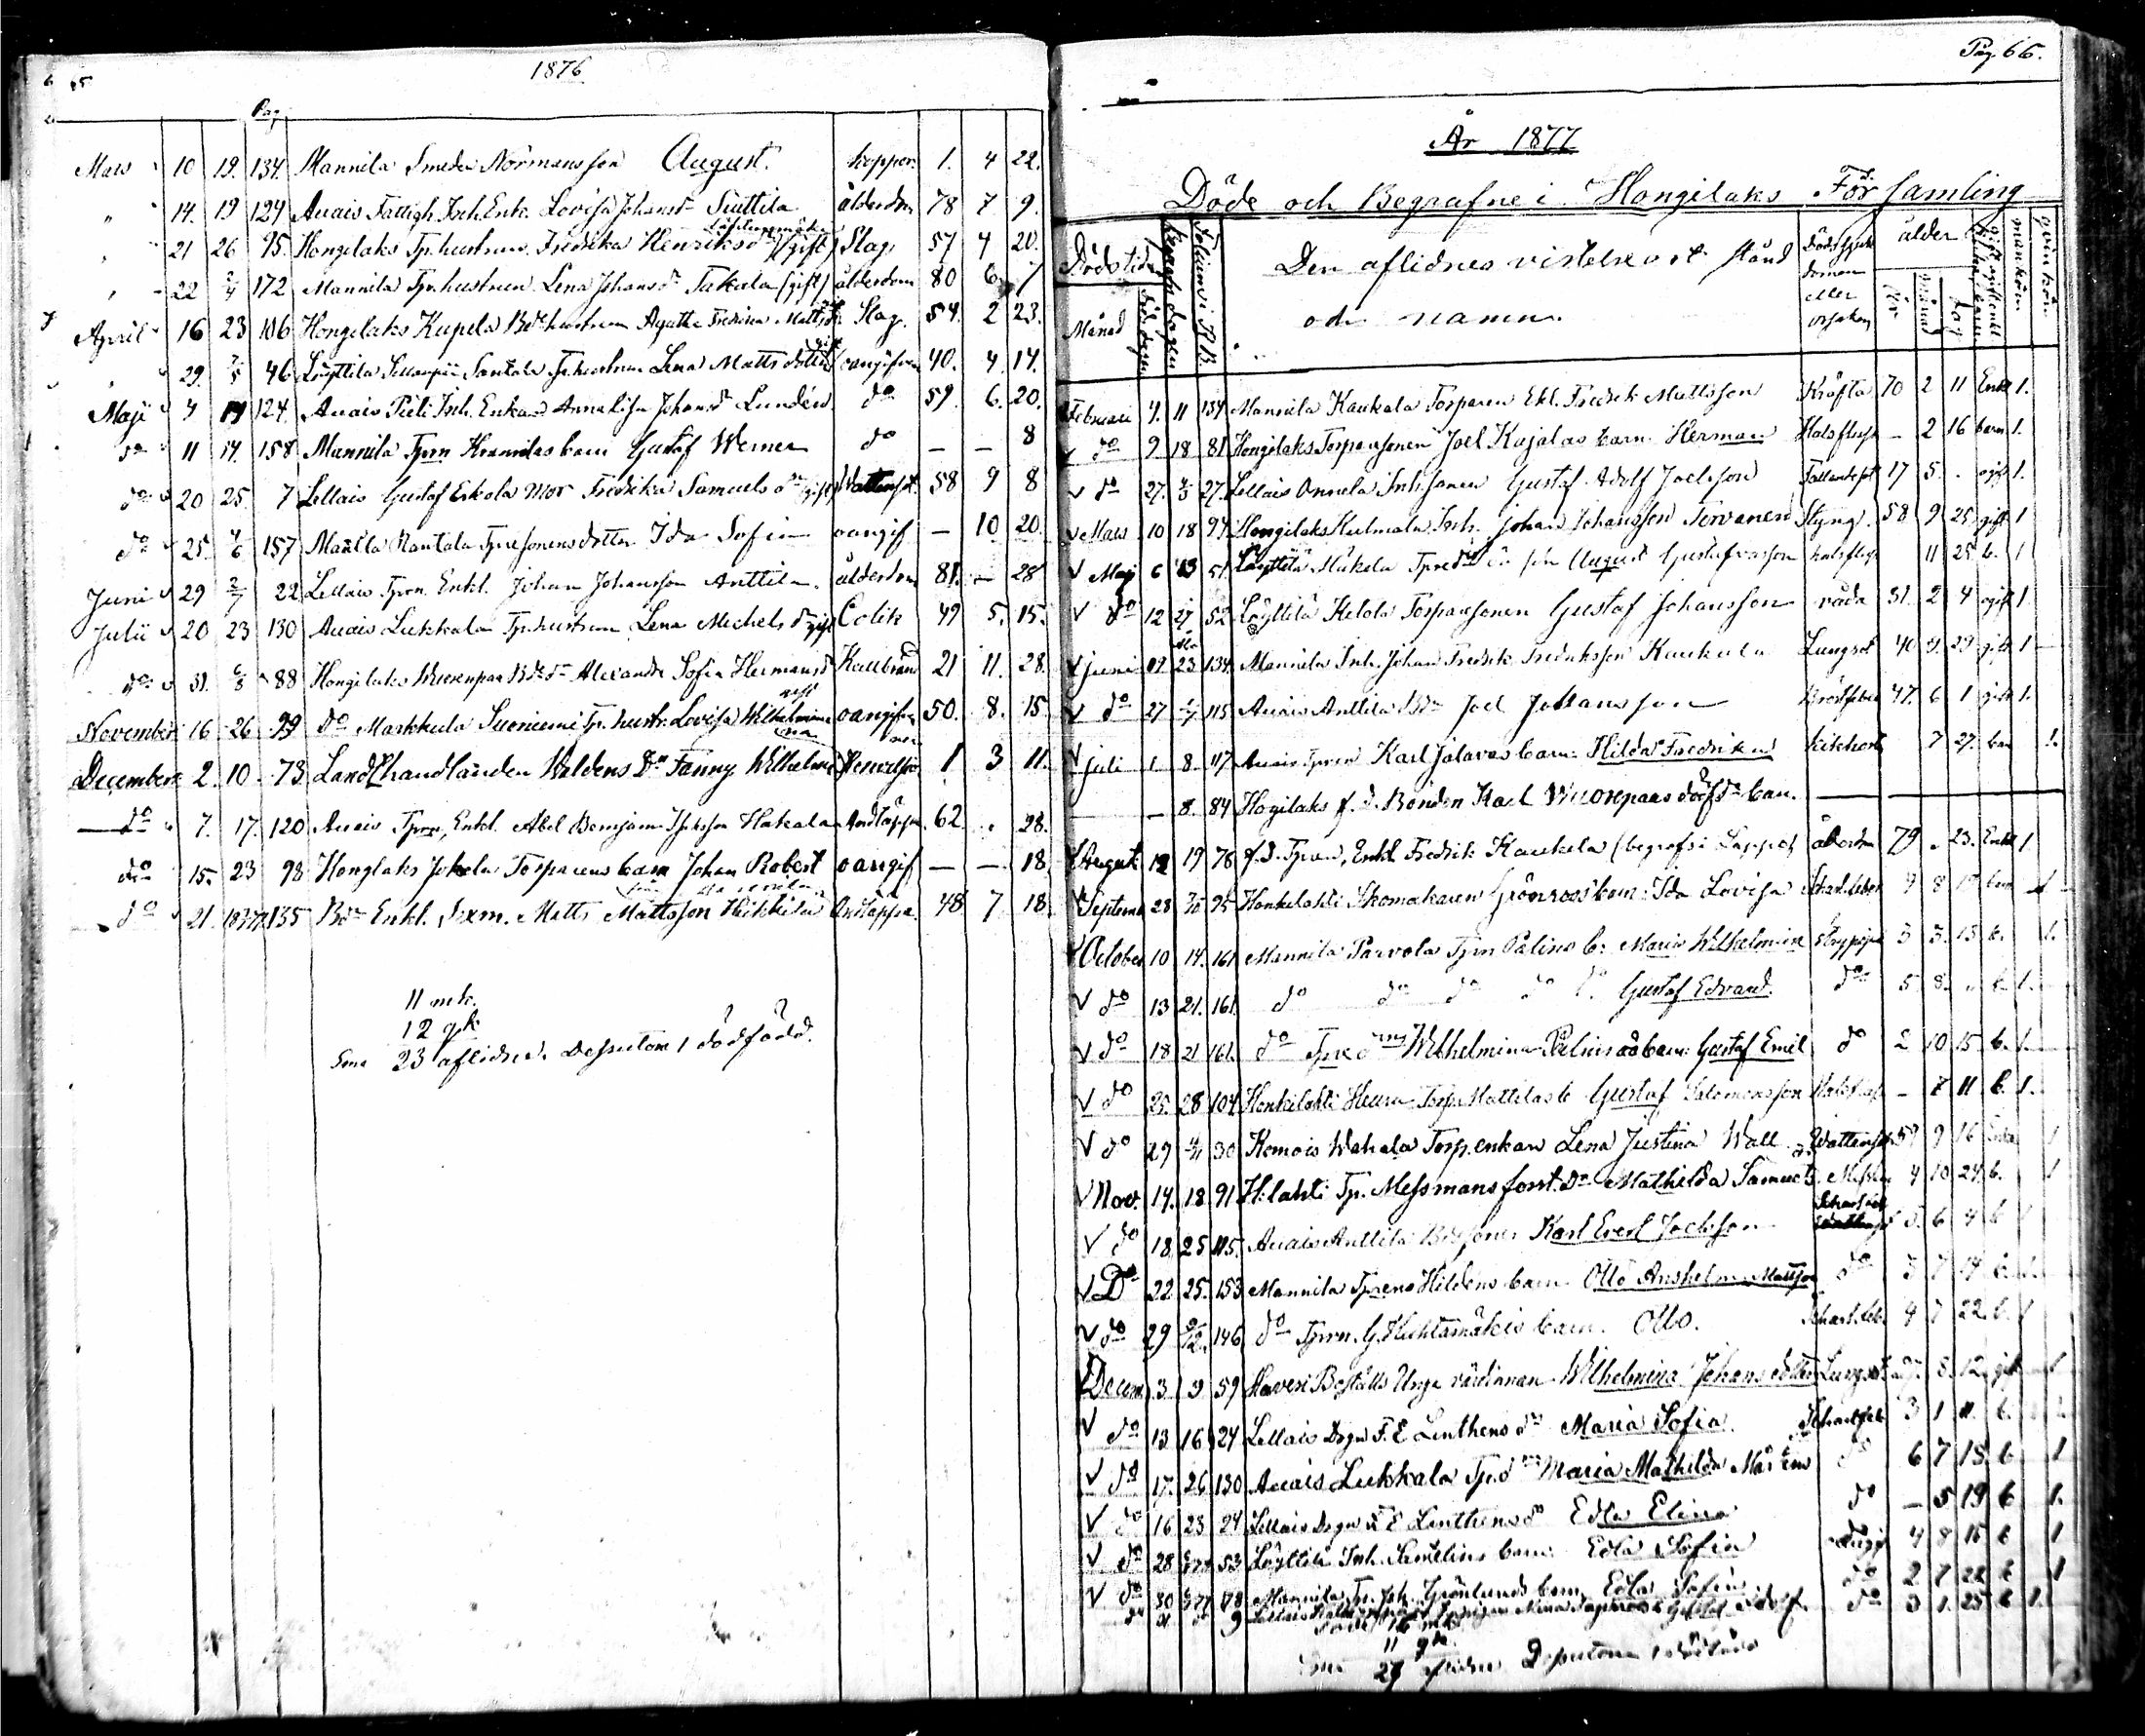 65
1876.
Pag
Mars 10 19. 134. Mannila Smeden Nörmansson August. koppor. 1. 4 22.
" 14. 19 124 Auais Fattigh. Inh. Enk. Lovisa Johansdr Siuttila ålderdom 78 7 9.
" 21 26 95. Hongilaks Tp. hustrun Fredrika Henriksdr (gift) Slag 57 4 20.
" 22 2/4 172 Mannila Tpr. hustrun Lena Johansdr Takala (gift) ålderdom 80 6 7
April 16 23 106 Hongilaks Kupela Bde hustrun Agatha Fredrika Mattsdr Slag. 54. 2 23.
" 29. 7/5 46 Löyttilä Sillanpää Santala Tp. hustrun Lena Mattsdotter gift oangifven 40. 4. 14.
Maji 4 124. Auais Pieli Inh. Enkan Anna Lisa Johansdr Lundén do 59. 6. 20.
do 11 14. 158 Mannila Tprn barn Gustaf Werner do — — 8
do 20 25. 7 Lellais Gustaf Eskola Mor Fredrika Samuelsdr gift Wattensot. 58 9 8
do 25. 157 Mannila Rantala Tpresonens dotter Ida Sofia oangif — 10 20.
Juni 29 2/7 22 Lellais Tprn. Enkl. Johan Johansson Anttila. ålderdom 81. — 28
Julii 20 23 130 Auais Liukkala Tp. hustrun Lena Michelsdr gift Colik 49 5. 15.
do 31. 88 Hongilaks Wuorenpää Bde dr Alexandra Sofia Hermansdr Kallbrand 21 11. 28.
November 16 26 99 do Markkula Suoniemi Tp. hustr. Lovisa Wilhelmina gift oangifven 50. 8. 15.
December 2. 10 73 Landthandlanden Waldens Dr Fanny Wilhelmina 1 3 11.
do 7. 17. 120 Auais Tprn, Enkl. Abel Benjam. Isaksson Hakala Andtäppa. 62. . 28.
do 15. 23 98. Honglaks Jokela Torparens barn Johan Robert oangif — — 18
do 21. 1877 135 Bdn Enkl. Sexm. Matts Mattsson Heikkilä Andtäppa. 48 7 18
11 mk.
12 qk.
Sma 23 aflidne. Dessutom 1 dödfödd.
Pag. 66.
År 1877
Döde och Begrafne i Hongilaks Församling
Dödstid
Månad
Död dagen
Begrafn. dagen
Folium i K.B.
Den aflidnes vistelseort stånd
och namn.
Dödssjukdomen eller orsaken
ålder
år
månad
dag
mankön
qvinkön
Februari 4. 11 134 Mannila Kaukala Torparen Ekl. Fredrik Mattsson Kräfta 70 2 11 Enkl 1.
v do 9 18 81 Hongilaks Torparsonen Joel Kajalas barn Herman Halsfluss — 2 16 barn 1.
v do 27. 4/3 27. Lellais Onnela Inh. sonen Gustaf Adolf Joelsson Fallandesot 17 5. . ogift 1.
v Mars 10 18 94 Hongilaks Kulmala Inh. Johan Johansson Tervanen Styng. 58 9 25 gift 1
v Maj 6 13 51. Löyttilä Mäkela Tpredr oä son August Gustafvasson halsfluss 11 25 b. 1
v do 12 27 52 Löyttilä Kelola Torparsonen Gustaf Johansson våda 31. 2 4 ogift 1
v juni 17 23 134. Mannila Inh. Johan Fredrik Fredriksson Kaukala Lungsot 40 9. 29 gift 1
v do 27 115 Auais Anttila Bdn Joel Johansson Bröstfeber 47. 6 1 gift 1.
v juli 1 8. 117 Auais Tprn Karl Jalavas barn: Hilda Fredrika kikhosta 7 27. barn 1.
— 8. 84 Hogilaks f. d. Bonden Karl Wuorenpääs döff. barn.
v August 12 19 78 f.d. Tprn, Enkl. Fredrik Kaukela (begrafs i Lappo) ålderdm 79 . 23. Enkl 1.
v Septemb 23 30 95 Honkilahti Skomakaren Grönroos barn: Ida Lovisa Scharl.feber 9 8 barn 1
v October 10 14. 161 Mannila Parvola Tprn Palins b: Maria Wilhelmina Strypsjuk 3 3. 13 b. 1.
v do 13 21. 161. do do do do b. Gustaf Edvard. do 5 8. „ b. 1.
v do 18 21 161. do Tpredr Wilhelmina Palins oä barn: Gustaf Emil do 2 10 15 b. 1.
v do 25. 28 104 Honkilahti Heura Torp. Mattilas b Gustaf Salomonsson — 7 11 b. 1.
v do 29 4/11 30 Komois Wahala Torp.enkan Lena Justina Wall Wattensot 57 9 16 1
v Nov. 14. 18 91 H:lahti Tp. Messmans forst. Dr Mathilda Samuels 4 10 24. b. 1
v do 18 25 115. Auais Anttila Bdesonen Karl Evert Joelsson 5. 6 4 b 1
v Do 22 25. 153 Mannila Tprens Hildens barn Otto Anshelm Mattsson do 3 7 14 b. 1.
v do 29 2/12 146 do Tprn. G. Huhtamäkis barn. Otto. Scharl.feb. 4 7 22 b. 1
Decem 3 9 59 Haveri Boställs Unga värdinnan Wilhelmina Johansdotter Lungsot 8. 12 gift 1
v do 13 16 24 Lellais Dagv F. E Linthens dr Maria Sofia. Scharlfeb. 3 1 11. b.
v do 17. 26 130 Auais Liukkala Tp.dr Maria Mathilda do 6 7 15 b 1
v do 16 23 24 Lellais Dagv F E Linthens dr Edla Elina do — 5 19 b 1.
v do 28 53 Löyttilä Inh. Samelins barn: Edla Sofia 4 8 15 b 1
v do 30 178 Mannila Tp. Joh. Grönlunds barn Edla Sofia do 2 7 22 b 1
do 9 Lellais Gustaf Adolf do 3 1. 25 b 1.
16 mk
11 qk.
Sma 27 aflidne Dessutom 1 dödfödd